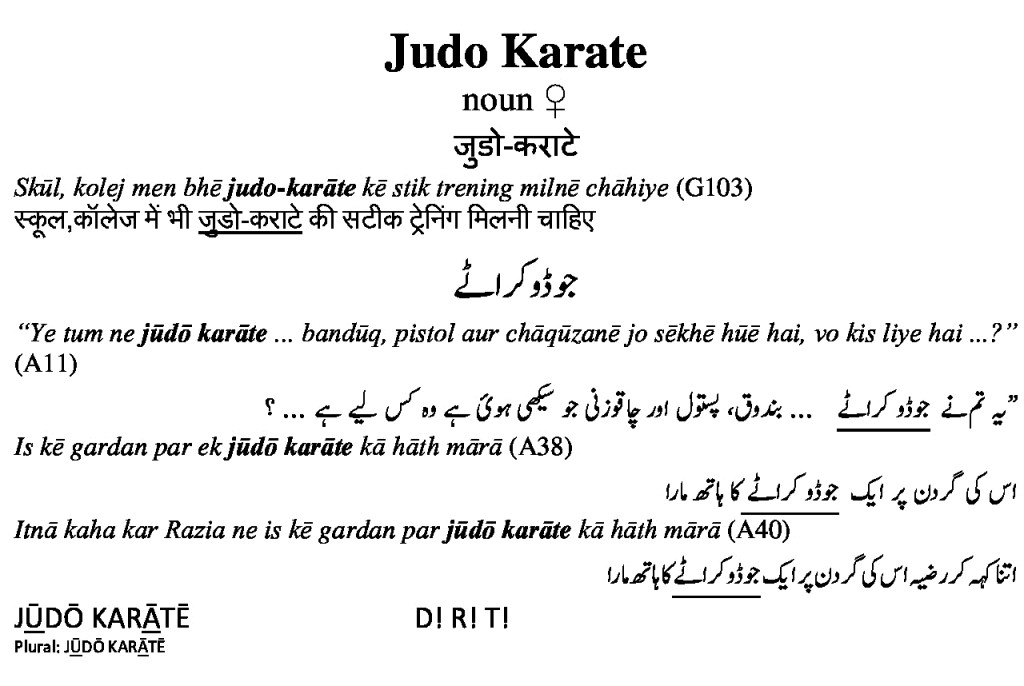 Judo Karate
noun ♀
जुडो-कराटे
Skūl, kolej men bhē judo-karāte kē stik trening milnē chāhiye (G103)
स्कूल,कॉलेज में भी जुडो-कराटे की सटीक ट्रेनिंग मिलनी चाहिए
جوڈو کراٹے
“Ye tum ne jūdō karāte ... bandūq, pistol aur chāqūzanē jo sēkhē hūē hai, vo kis liye hai ...?”
(A11)
”یہ تم نے جوڈو کراٹے ... بندوق، پستول اور چاقوزنی جو سیکھی ہوئ ہے وہ کس لیے ہے ... ؟
Is kē gardan par ek jūdō karāte kā hāth mārā (A38)
اس کی گردن پر ایک جوڈو کراٹے کا ہاتھ مارا
Itnā kaha kar Razia ne is kē gardan par jūdō karāte kā hāth mārā (A40)
اتنا کہہ کر رضیہ اس کی گردن پر ایک جوڈو کراٹے کا ہاتھ مارا
JŪDŌ KARĀTĒ D! R! T!
Plural: JŪDŌ KARĀTĒ